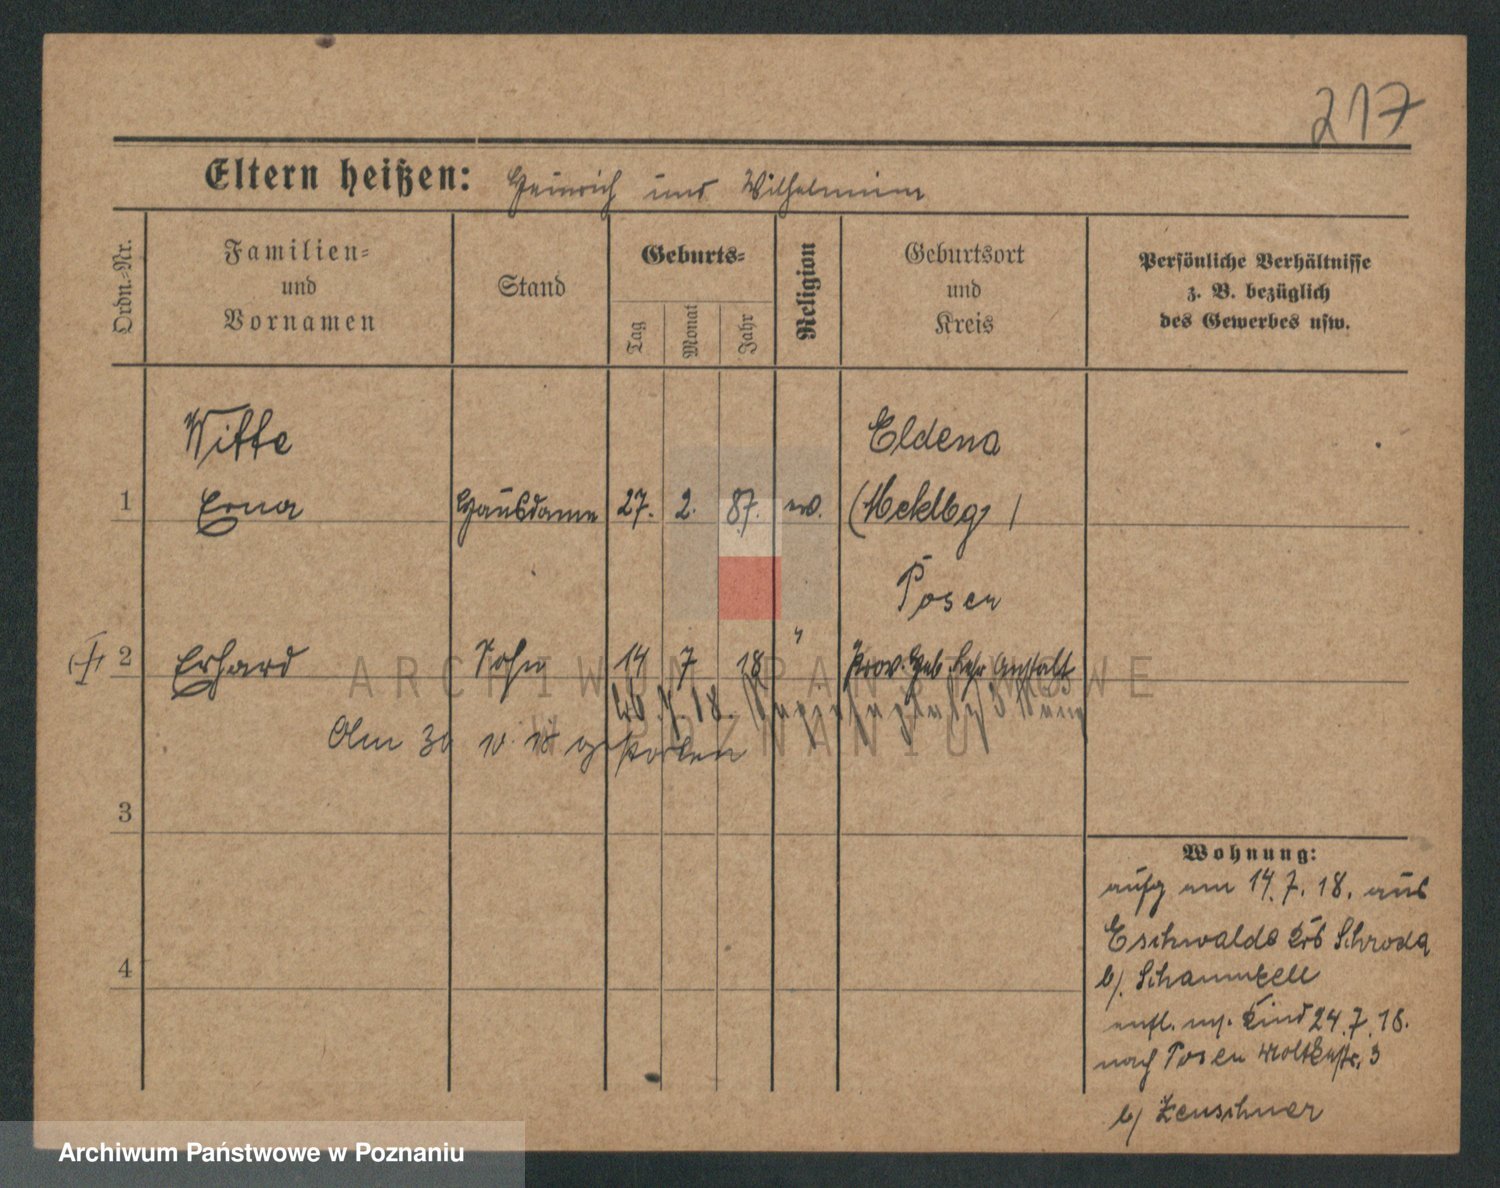 217
Eltern heißen: Heinrich und Wilhelmine
Ordn.-Nr.
Familien-
und
Vornamen
Stand
Geburts-
Tag
Monat
Jahr
Religion
Geburtsort
und
Kreis
Persönliche Verhältnisse
z. B. bezüglich
des Gewerbes usw.
Witte
Eldena
1 Erna Hausdame 27. 2. 87. ev. (Meklbg)
Posen
2 Erhard Sohn 14 7 18 " Prov. Heb. Lehr Anstalt
Am 30 10. 18 gestorben
3
4
Wohnung:
aufg am 14.7.18. aus
Eschwalde Krs Schroda
b/.
entl. m. Kind 24.7.18.
nach Posen Moltkestr. 3
b/ Zenschner
ARCHIWUM PAŃSTWOWE
W POZNANIU
Archiwum Państwowe w Poznaniu